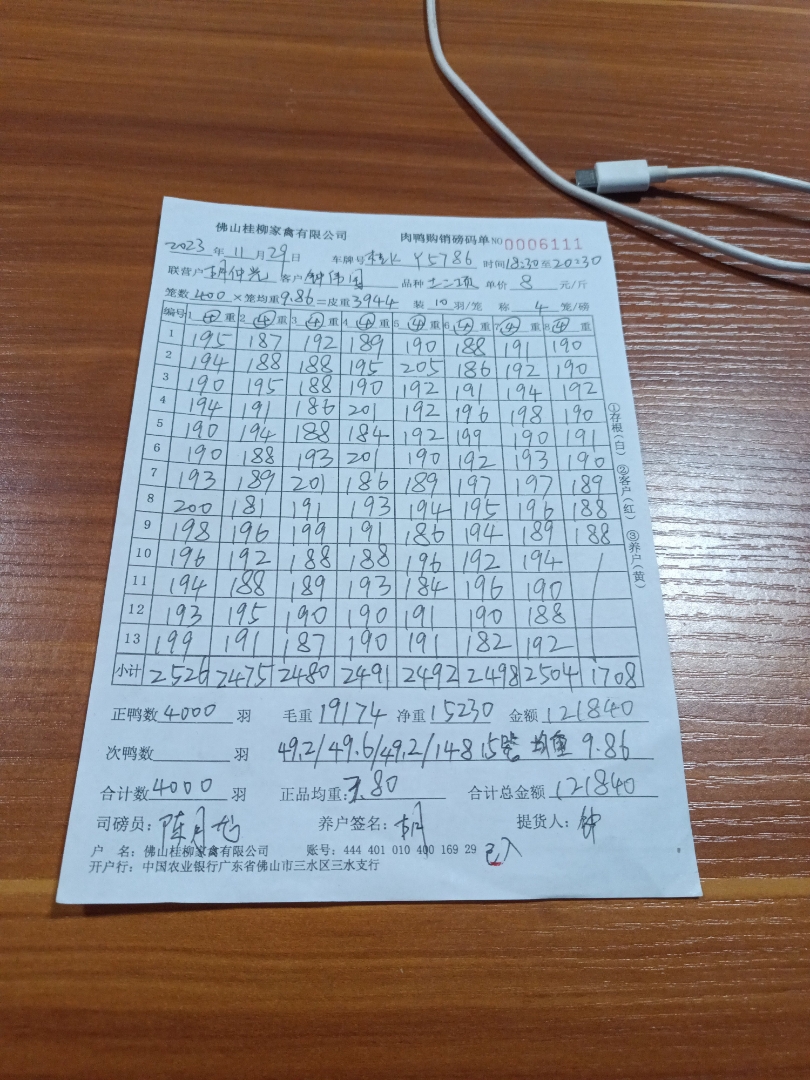 佛山桂柳家禽有限公司 肉鸭购销磅码单 NO 0006111
2023 年 11 月 29 日 车牌号 桂K Y5786 时间 18:30 至 20:30
联营户 胡仲光 客户 钟伟国 品种 土二项 单价 8 元/斤
笼数 400 ×笼均重 9.86 =皮重 3944 装 10 羽/笼 称 4 笼/磅
编号 1 ④ 重 2 ④ 重 3 ④ 重 4 ④ 重 5 ④ 重 6 ④ 重 7 ④ 重 8 ④ 重
1 195 187 192 189 190 188 191 190
2 194 188 188 195 205 186 192 190
3 190 195 188 190 192 191 194 192
4 194 191 186 201 192 196 198 190
5 190 194 188 184 192 199 190 191
6 190 188 193 201 190 192 193 190
7 193 189 201 186 189 197 197 189
8 200 181 191 193 194 195 196 188
9 198 196 199 191 186 194 189 188
10 196 192 188 188 196 192 194
11 194 188 189 193 184 196 190
12 193 195 190 190 191 190 188
13 199 191 187 190 191 182 192
小计 2526 2475 2480 2491 2492 2498 2504 1708
正鸭数 4000 羽 毛重 19174 净重 15230 金额 121840
次鸭数 羽 49.2/49.6/49.2/148 15笼 均重 9.86
合计数 4000 羽 正品均重: 3.80 合计总金额 121840
司磅员: 陈月龙 养户签名: 胡 提货人: 钟
户 名: 佛山桂柳家禽有限公司 账号: 444 401 010 400 169 29 已入
开户行: 中国农业银行广东省佛山市三水区三水支行
①存根(白) ②客户(红) ③养户(黄)